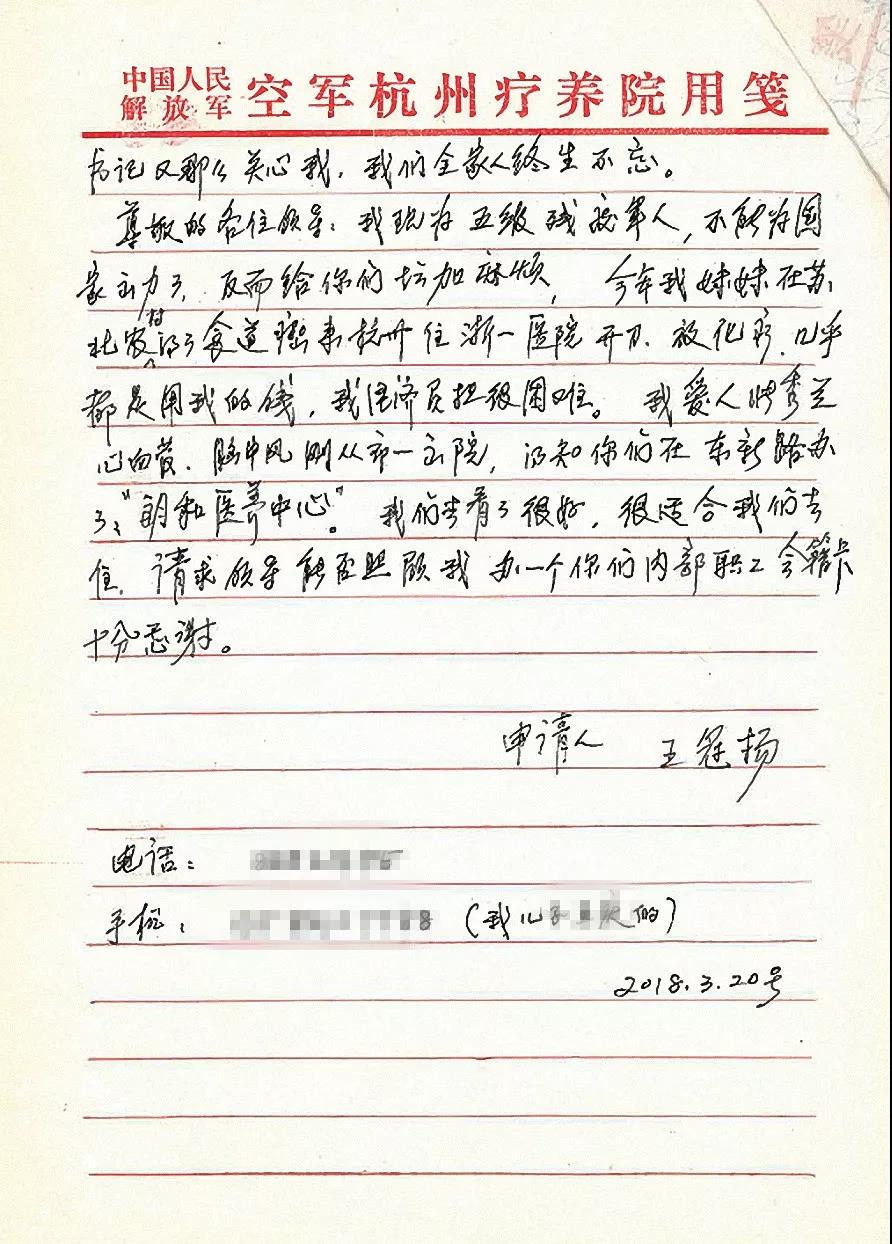 中国人民解放军 空军杭州疗养院用笺
书记又那么关心我，我们全家人终生不忘。
尊敬的各位领导：我现为五级残疾军人，不能为国
家出力了，反而给你们增加麻烦，今年我妹妹在苏
北农村得了食道癌来杭州住浙一医院开刀、放化疗，几乎
都是用我的钱，我经济负担很困难。我爱人 秀兰
心血管、脑中风刚从市一出院，得知你们在东新路办
了：“朗和医养中心”。我们去看了很好，很适合我们去
住，请求领导能否照顾我办一个你们内部职工会籍卡
十分感谢。
申请人 王冠扬
电话：
手机： （我儿子 的）
2018.3.20号